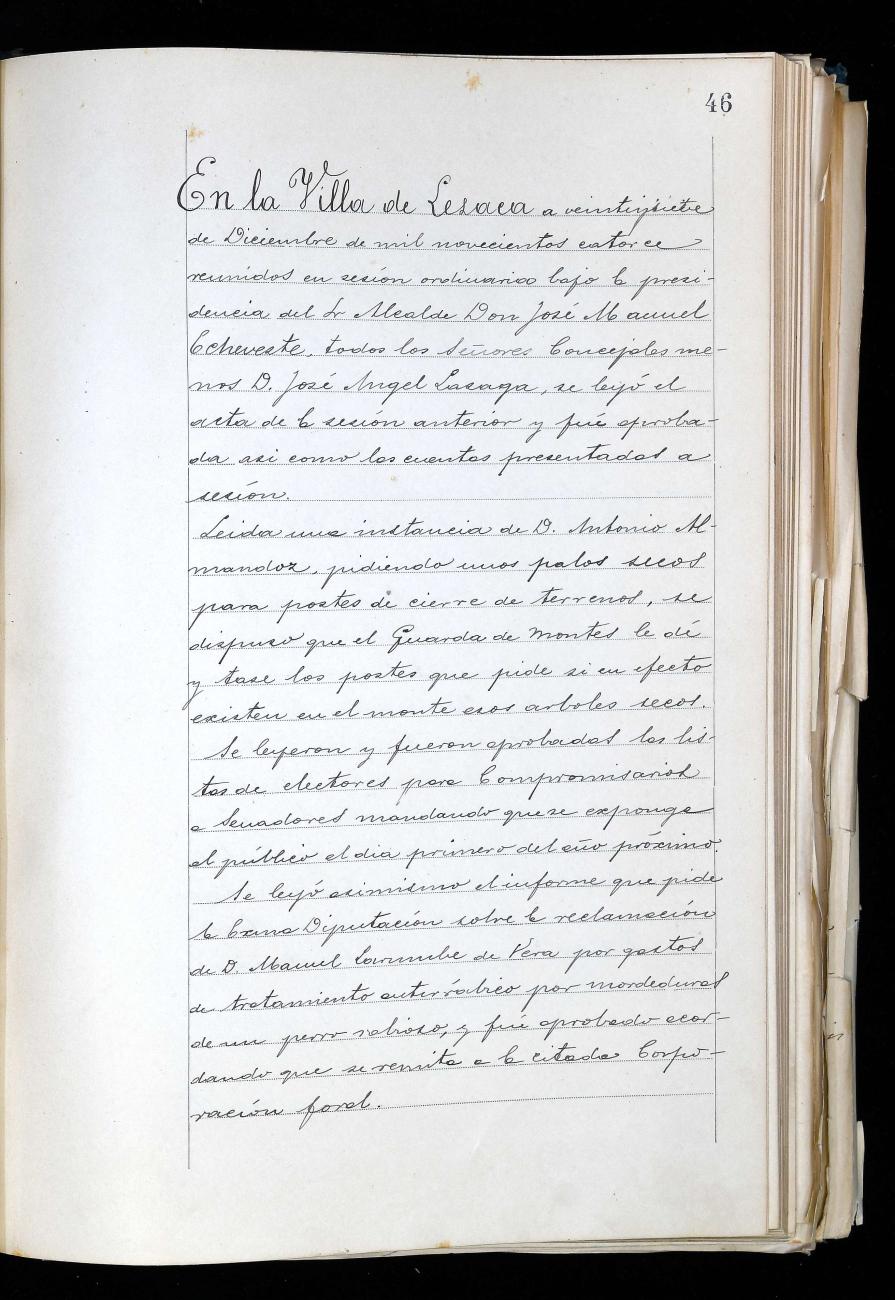 46
En la Villa de Lesaca a veintisiete
de Diciembre de mil novecientos catorce
reunidos en sesión ordinaria bajo la presi-
dencia del Sr Alcalde Don José Manuel
Echeveste, todos los Señores Concejales me-
nos D. José Angel Lasaga, se leyó el
acta de la sesión anterior y fué aproba-
da asi como las cuentas presentadas a
sesión.
Leida una instancia de D. Antonio Al-
mandoz, pidiendo unos palos secos
para postes de cierre de terrenos, se
dispuso que el Guarda de montes le dé
y tase los postes que pide si en efecto
existen en el monte esos arboles secos.
Se leyeron y fueron aprobadas las lis-
tas de electores para Compromisarios
a Senadores mandando que se exponga
al público el dia primero del año próximo.
Se leyó asimismo el informe que pide
la Exma Diputación sobre la reclamación
de D. Manuel Larumbe de Vera por gastos
de tratamiento antirrábico por mordeduras
de un perro rabioso, y fué aprobado acor-
dando que se remita a la citada Corpo-
ración foral.